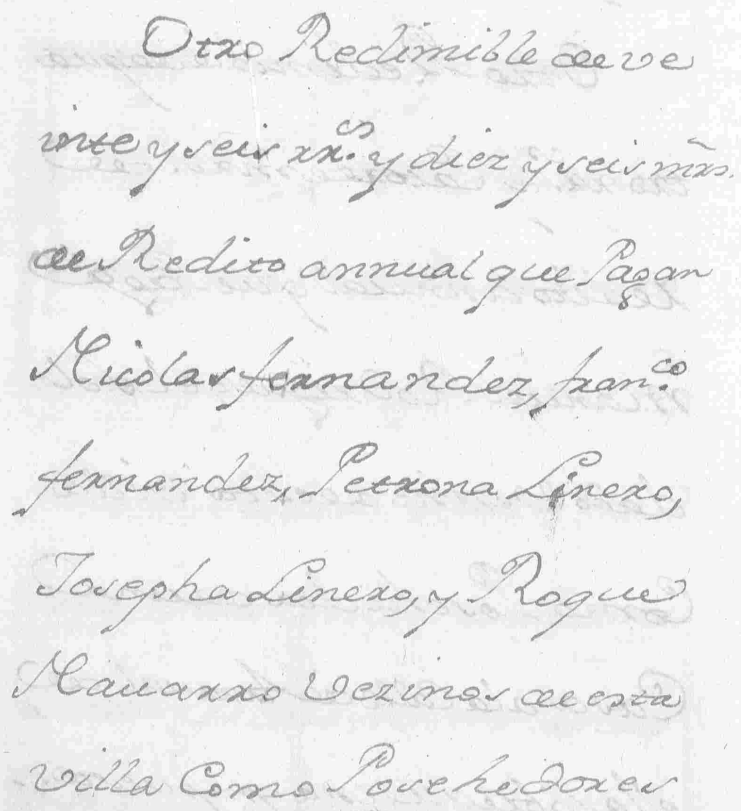 Otro Redimible de ve
inte y seis rr.<sup>s</sup> y diez y seis mrs.
de Redito annual que Pagan
Nicolas fernandez, fran.<sup>co</sup>
fernandez, Petrona Linero,
Josepha Linero, y Roque
Nauarro Vezinos de esta
Villa Como Posehedores